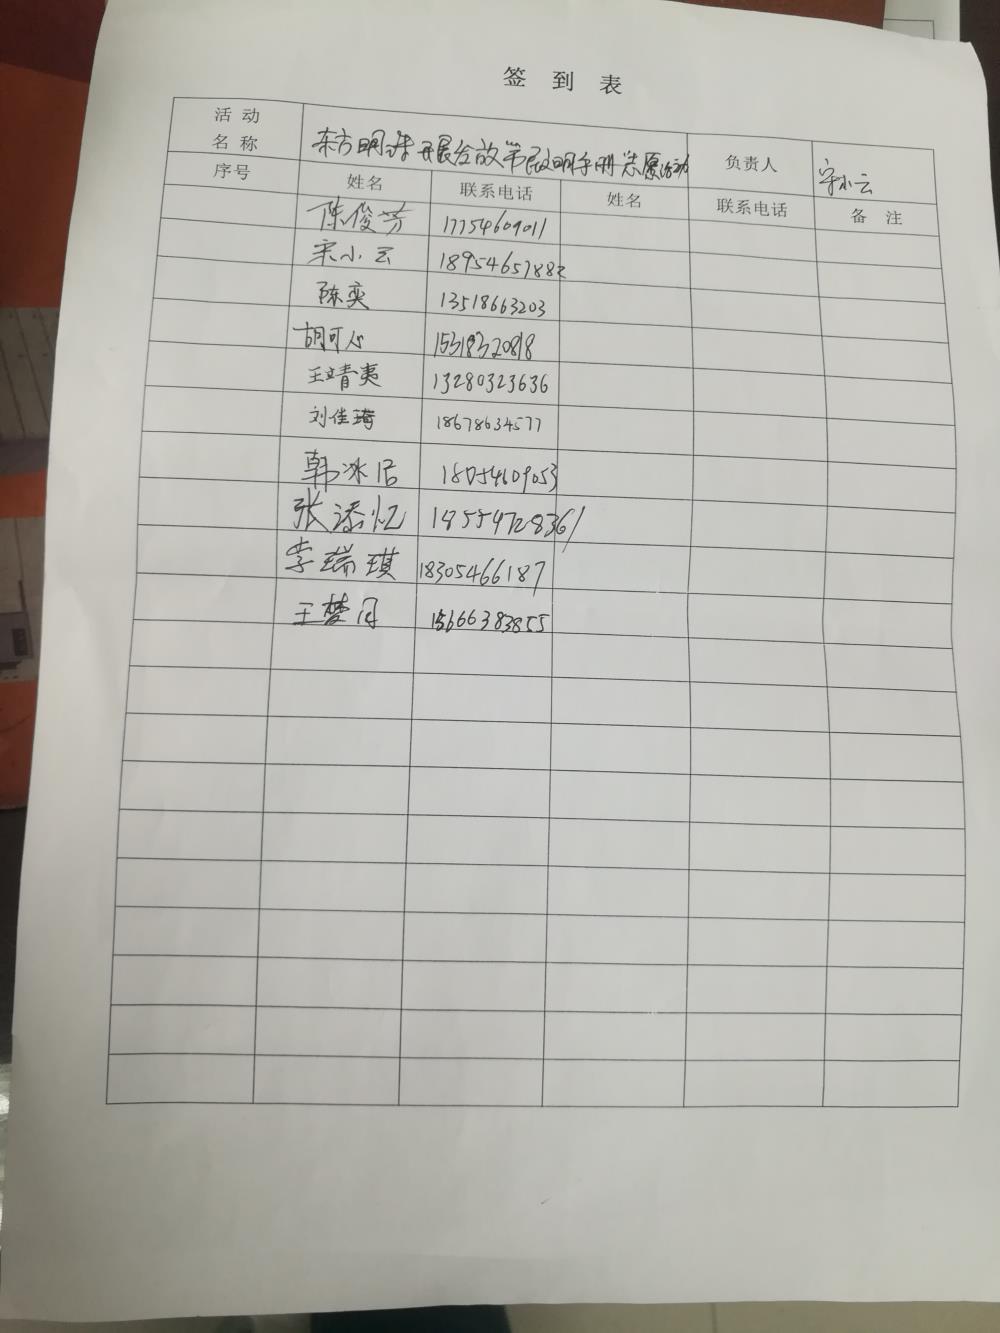 签 到 表
活 动
名 称
东方明珠开展发放市民文明手册志愿活动
负责人
宋小云
序号 姓名 联系电话 姓名 联系电话 备 注
陈俊芳 17754609011
宋小云 18954657882
陈奕 13518663203
胡可心 15318320818
王靖夷 13280323636
刘佳琦 18678634577
韩冰 18054609053
张添忆 18554728361
李瑞琪 18305466187
王梦月 15666383855